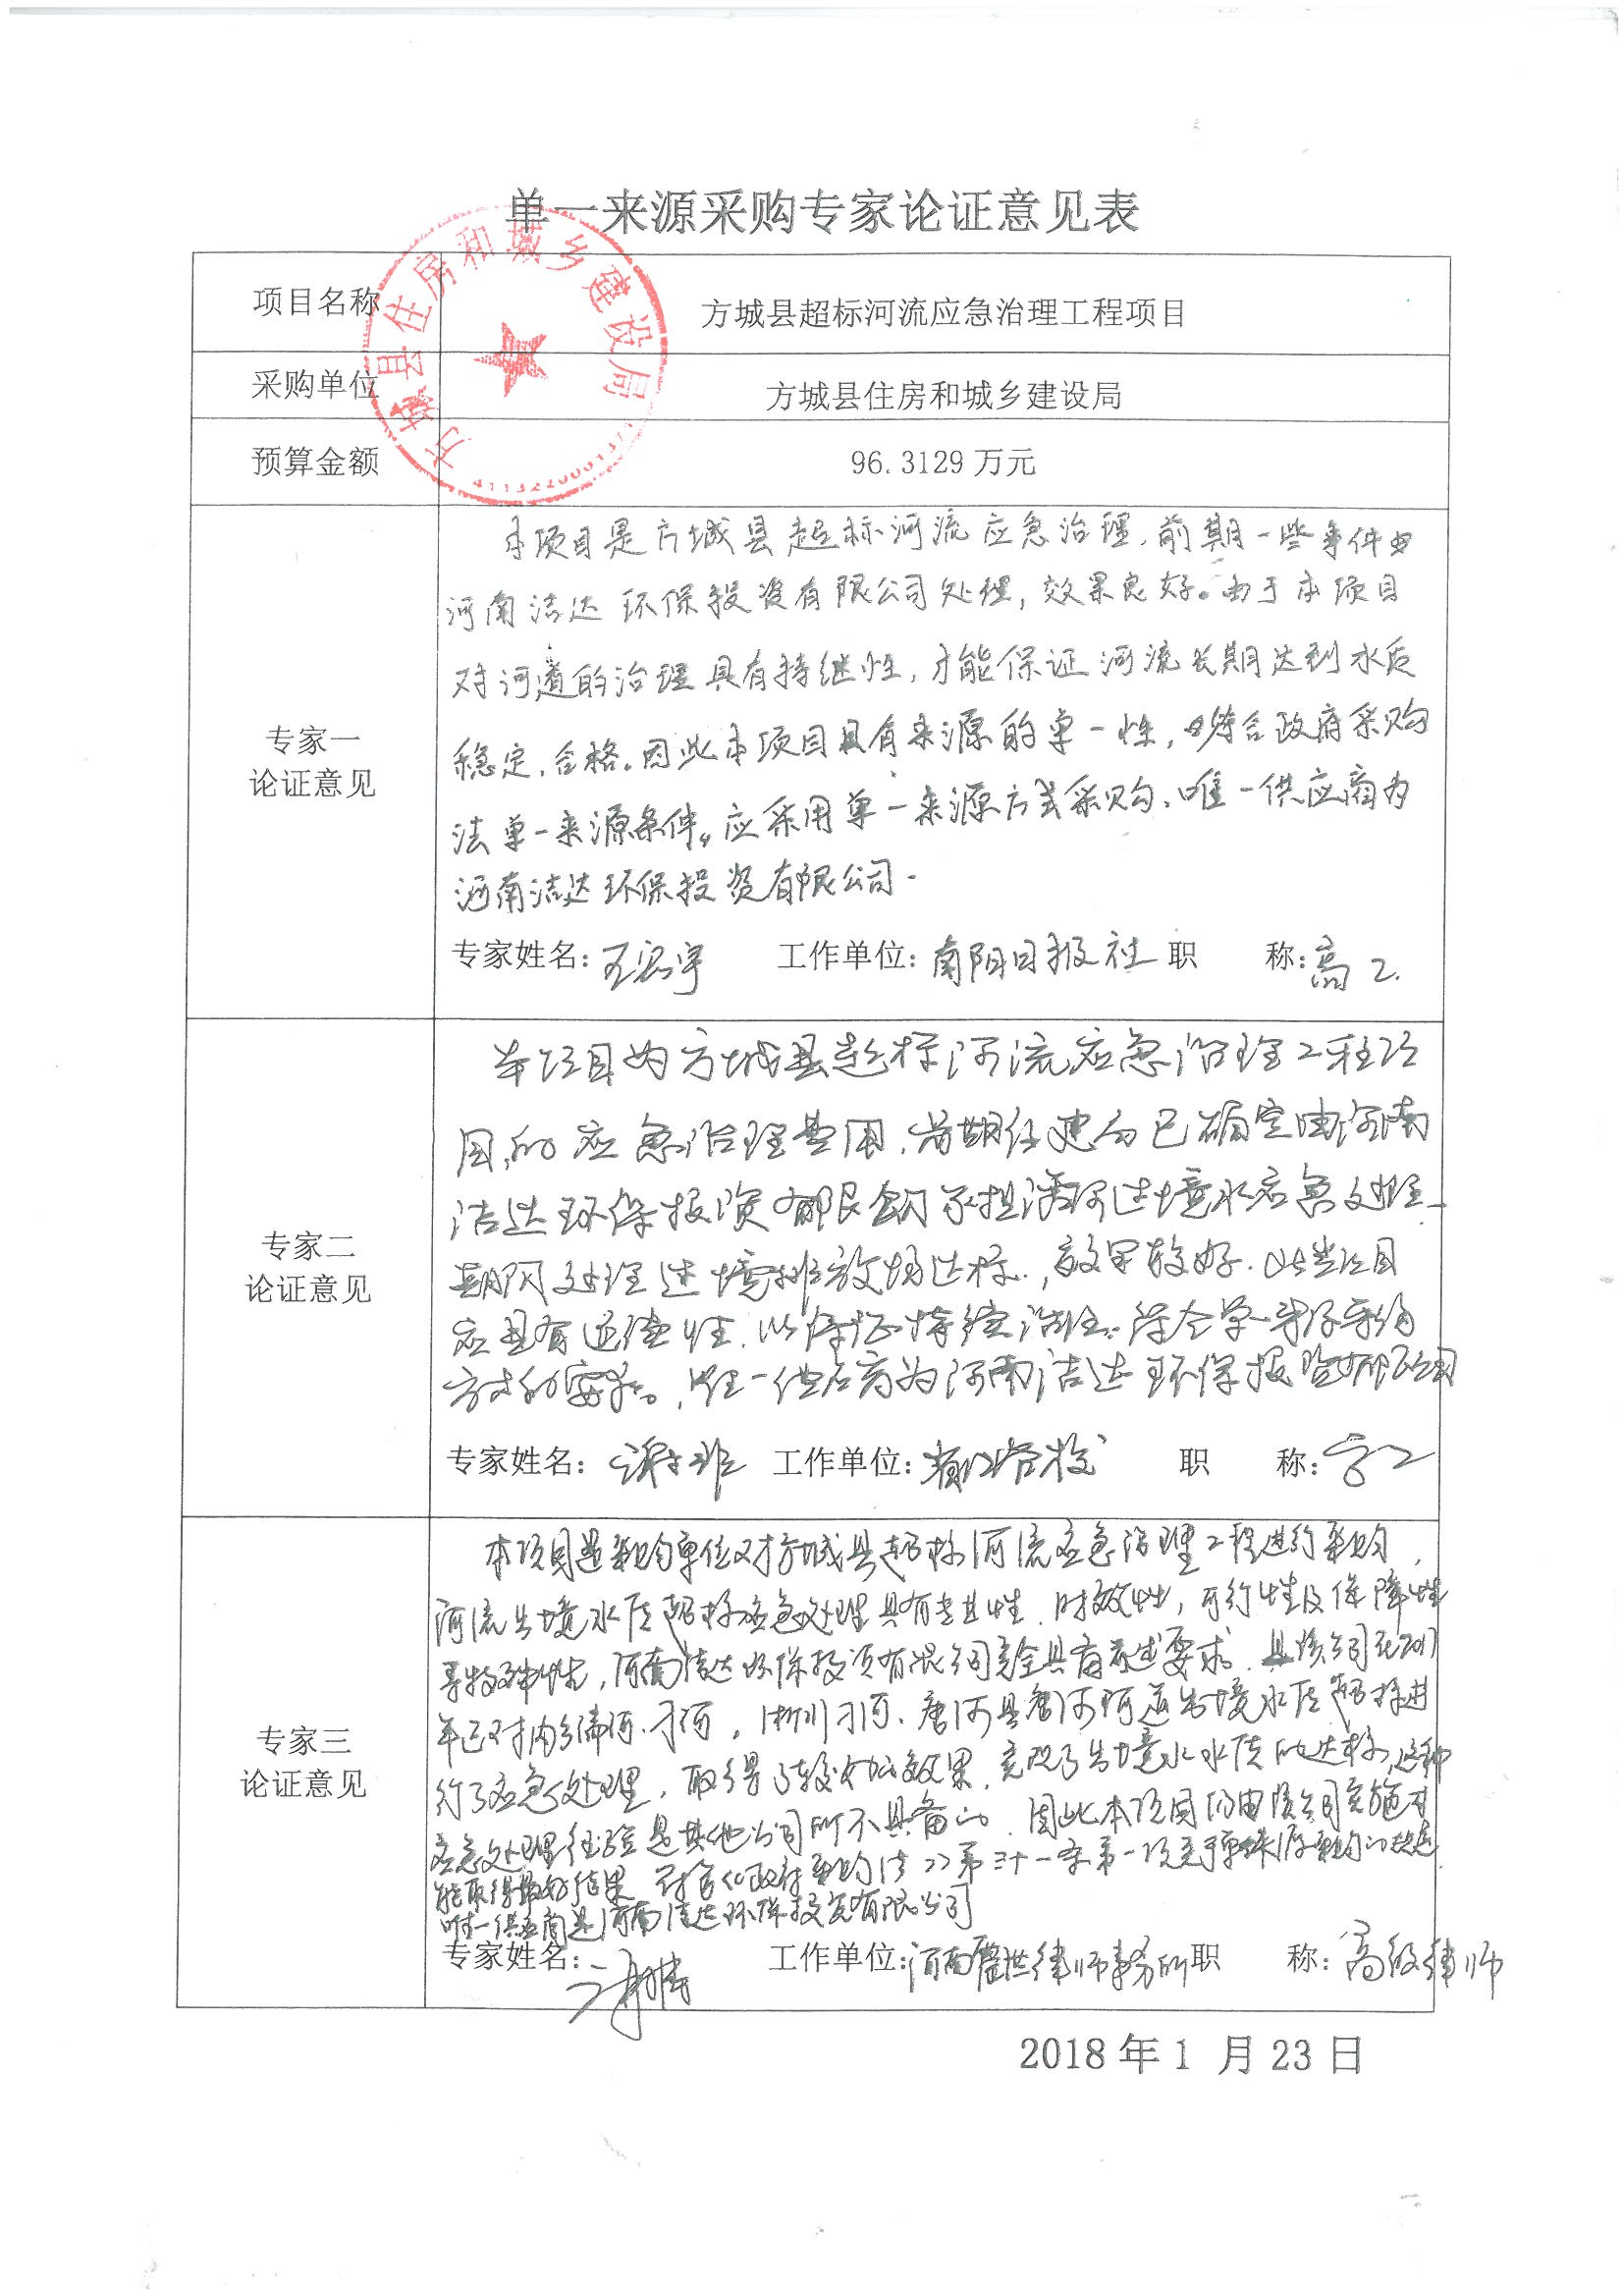 单一来源采购专家论证意见表
项目名称 方城县超标河流应急治理工程项目
采购单位 方城县住房和城乡建设局
预算金额 96.3129 万元
方城县住房和城乡建设局
专家一
论证意见
本项目是方城县超标河流应急治理,前期一些事件由
河南洁达环保投资有限公司处理,效果良好。由于本项目
对河道的治理具有持继性,才能保证河流长期达到水质
稳定、合格。因此本项目具有来源的单一性,符合政府采购
法单一来源条件。应采用单一来源方式采购,唯一供应商为
河南洁达环保投资有限公司.
专家姓名: 王 宇 工作单位: 南阳日报社 职 称: 高工.
专家二
论证意见
本项目为方城县超标河流应急治理工程项
目的应急治理费用,前期 已确定由河南
洁达环保投资有限公司承担 河出境水应急处理
期间处理出境排放均达标,效果较好.此类项目
应具有连续性,以保证持续治理.符合单一来源采购
方式的要求。唯一供应商为河南洁达环保投资有限公司
专家姓名: 谢 工作单位: 职 称: 高工
专家三
论证意见
本项目是采购单位对方城县超标河流应急治理工程进行采购,
河流出境水质超标应急处理具有专业性、时效性,可行性及保障性
等特殊性,河南洁达环保投资有限公司完全具备上述要求,且该公司在2017
年已对内乡湍河、刁河,淅川刁河、唐河县唐河河道出境水质超标进
行了应急处理,取得了较好的效果,实现了出境水水质的达标,这种
应急处理经验是其他公司所不具备的,因此本项目仍由该公司实施才
能取得最好结果 符合《政府采购法》第三十一条第一项关于单一来源采购的规定
唯一供应商是河南洁达环保投资有限公司
专家姓名: 工作单位: 河南 世律师事务所 职 称: 高级律师
2018 年 1 月 23 日